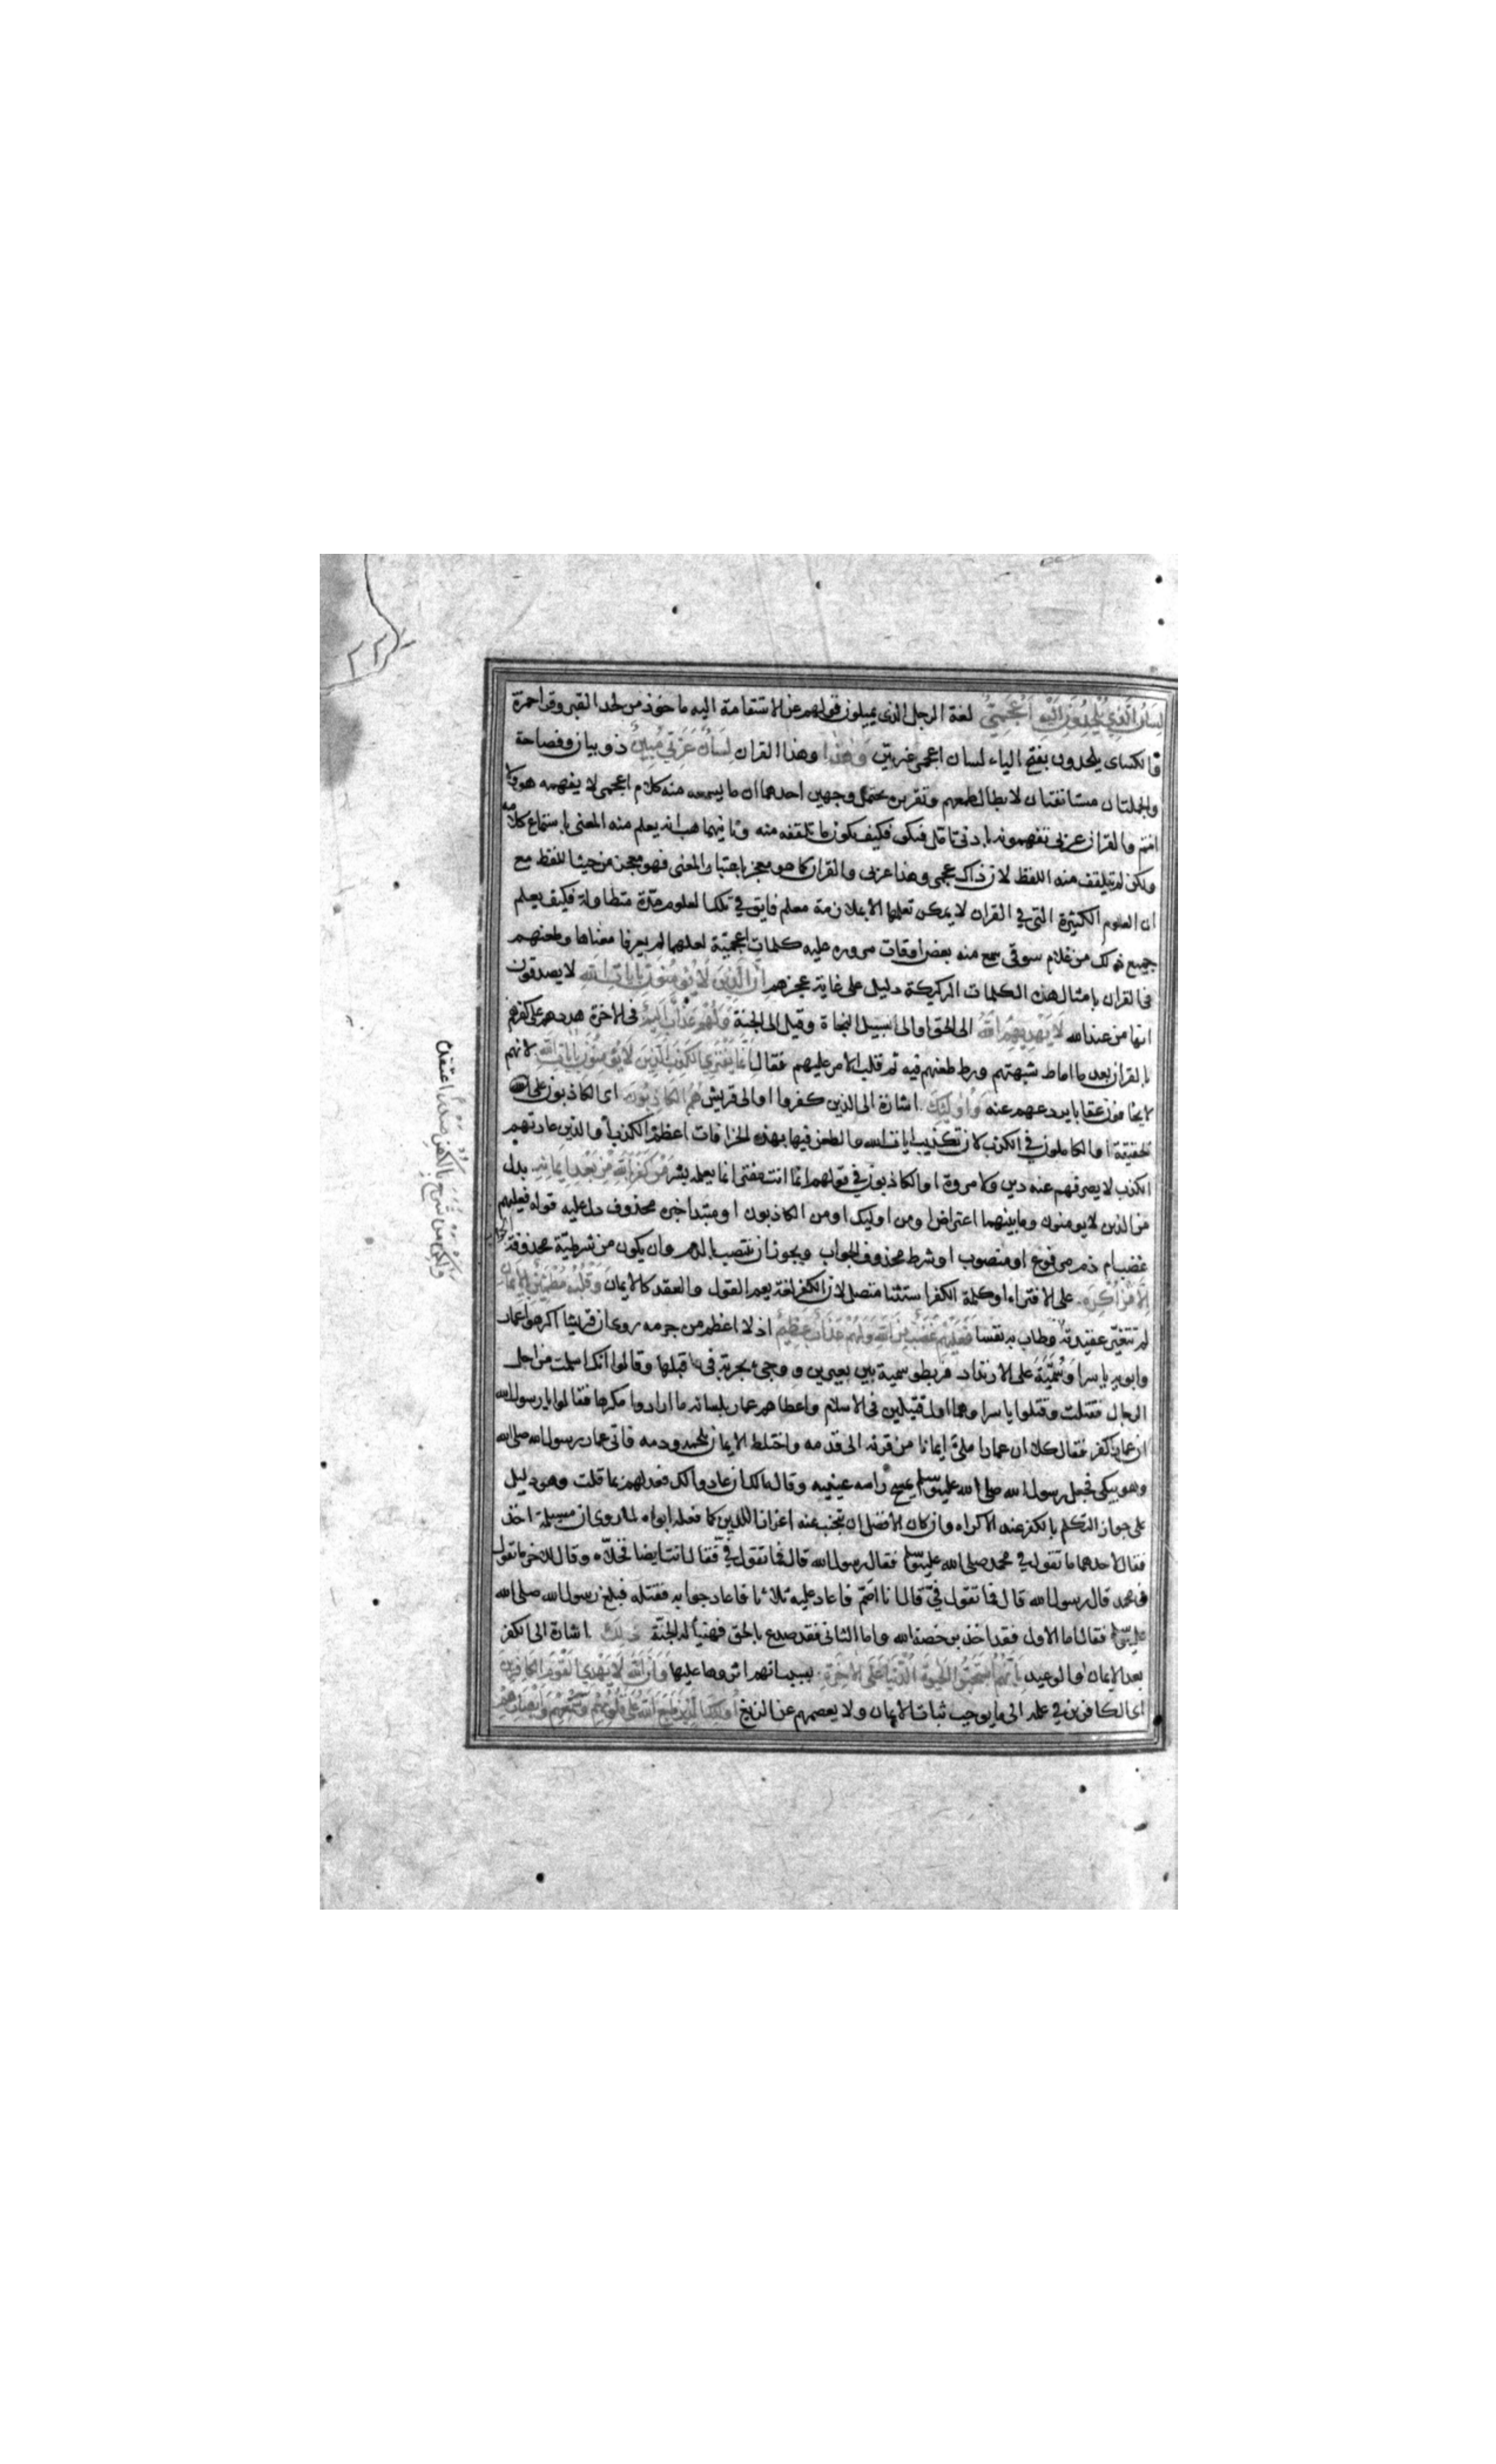 لسان الذي يلحدون اليه اعجمي لغة الرجل الذى يميلون قولهم عن الاستقامة اليه ماخوذ من لحد القبر وقرا حمزة
والكساى يلحدون بفتح الياء لسان اعجمى غير بين وهذا وهذا القران لسان عربي مبين ذو بيان وفصاحة
والجملتان مستانفتان لابطال طعنهم وتقريره يحتمل وجهين احدهما ان ما يسمعه منه كلام اعجمى لا يفهمه هو ولا
انتم والقران عربى تفهمونه بادنى تامل فيكون فكيف يكون ما تلقفه منه وثانيهما هب انه يعلم منه المعنى باستماع كلامه
ولكن لم يتلقف منه اللفظ لان ذاك عجمى وهذا عربى والقران كما هو معجز باعتبار المعنى فهو معجز من حيث اللفظ مع
ان العلوم الكثيرة التى في القران لا يمكن تعلمها الا بملازمة معلم فايق في تلك العلوم مدة متطاولة فكيف يعلم
جميع ذلك من غلام سوقى سمع منه بعض اوقات مروره عليه كلمات اعجمية لعلهما لم يعرفا معناها وطعنهم
فى القران بامثال هذه الكلمات الركيكة دليل على غاية عجزهم ان الذين لا يؤمنون بايات الله لا يصدقون
انها من عند الله لا يهديهم الله الى الحق او الى سبيل النجاة وقيل الى الجنة ولهم عذاب اليم فى الاخرة هددهم على كفرهم
بالقران بعد ما اماط شبهتهم ورد طعنهم فيه ثم قلب الامر عليهم فقال انما يفتري الكذب الذين لا يؤمنون بايات الله لانهم
لا يخافون عقابا يردعهم عنه واوليك اشارة الى الذين كفروا او الى قريش هم الكاذبون اى الكاذبون على
الحقيقة او الكاملون في الكذب لان تكذيب ايات الله والطعن فيها بهذه الخرافات اعظم الكذب او الذين عادتهم
الكذب لا يصرفهم عنه دين ولا مروة او الكاذبون في قولهم انما انت مفتر انما يعلمه بشر من كفر بالله من بعد ايمانه بدل
من الذين لا يومنون وما بينهما اعتراض او من اوليك او من الكاذبون او مبتدا خبره محذوف دل عليه قوله فعليهم
غضب ام ذم مرفوع او منصوب او شرط محذوف الجواب ويجوز ان ينتصب بالذم وان يكون من شرطية محذوفة
الا من اكره على الافتراء او كلمة الكفر استثنا متصل لان الكفر لغة يعم القول والعقد كالايمان وقلبه مطمئن بالايمان
لم تتغير عقيدته وطاب به نفسا فعليهم غضب من الله ولهم عذاب عظيم اذ لا اعظم من جرمه روى ان قريشا اكرهوا عمار
وابويه ياسرا وسمية على الارتداد فربطوا سمية بين بعيرين ووجئ بحربة فى قبلها وقالوا انك اسلمت من اجل
الرجال فقتلت وقتلوا ياسرا وهما اول قتيلين فى الاسلام واعطاهم عمار بلسانه ما ارادوا مكرها فقالوا يا رسول الله
ان عمارا كفر فقال كلا ان عمارا ملئ ايمانا من قرنه الى قدمه واختلط الايمان بلحمه ودمه فاتى عمار رسول الله صلى الله
وهو يبكى فجعل رسول الله صلى الله عليه وسلم يمسح عينيه وقال مالك ان عادوا لك فعد لهم بما قلت وهو دليل
على جواز التكلم بالكفر عند الاكراه وان كان الافضل ان يتجنب عنه اعزازا للدين كما فعله ابواه لما روى ان مسيلمة اخذ
فقال لاحدهما ما تقول في محمد صلى الله عليه وسلم فقال رسول الله قال فما تقول في فقال انت ايضا فخلاه وقال للاخر ما تقول
فى محمد قال رسول الله قال فما تقول في قال انا اصم فاعاد عليه ثلاثا فاعاد جوابه فقتله فبلغ رسول الله صلى الله
عليه وسلم فقال اما الاول فقد اخذ برخصة الله واما الثانى فقد صدع بالحق فهنيأ له الجنة ذلك اشارة الى الكفر
بعد الايمان او الوعيد بانهم استحبوا الحيوة الدنيا على الاخرة بسبب انهم اثروها عليها وان الله لا يهدي القوم الكافرين
اى الكافرين في علمه الى ما يوجب ثبات الايمان ولا يعصمهم عن الزيغ اولئك الذين طبع الله على قلوبهم وسمعهم وابصارهم
ولكن من شرح بالكفر صدرا اعتقده